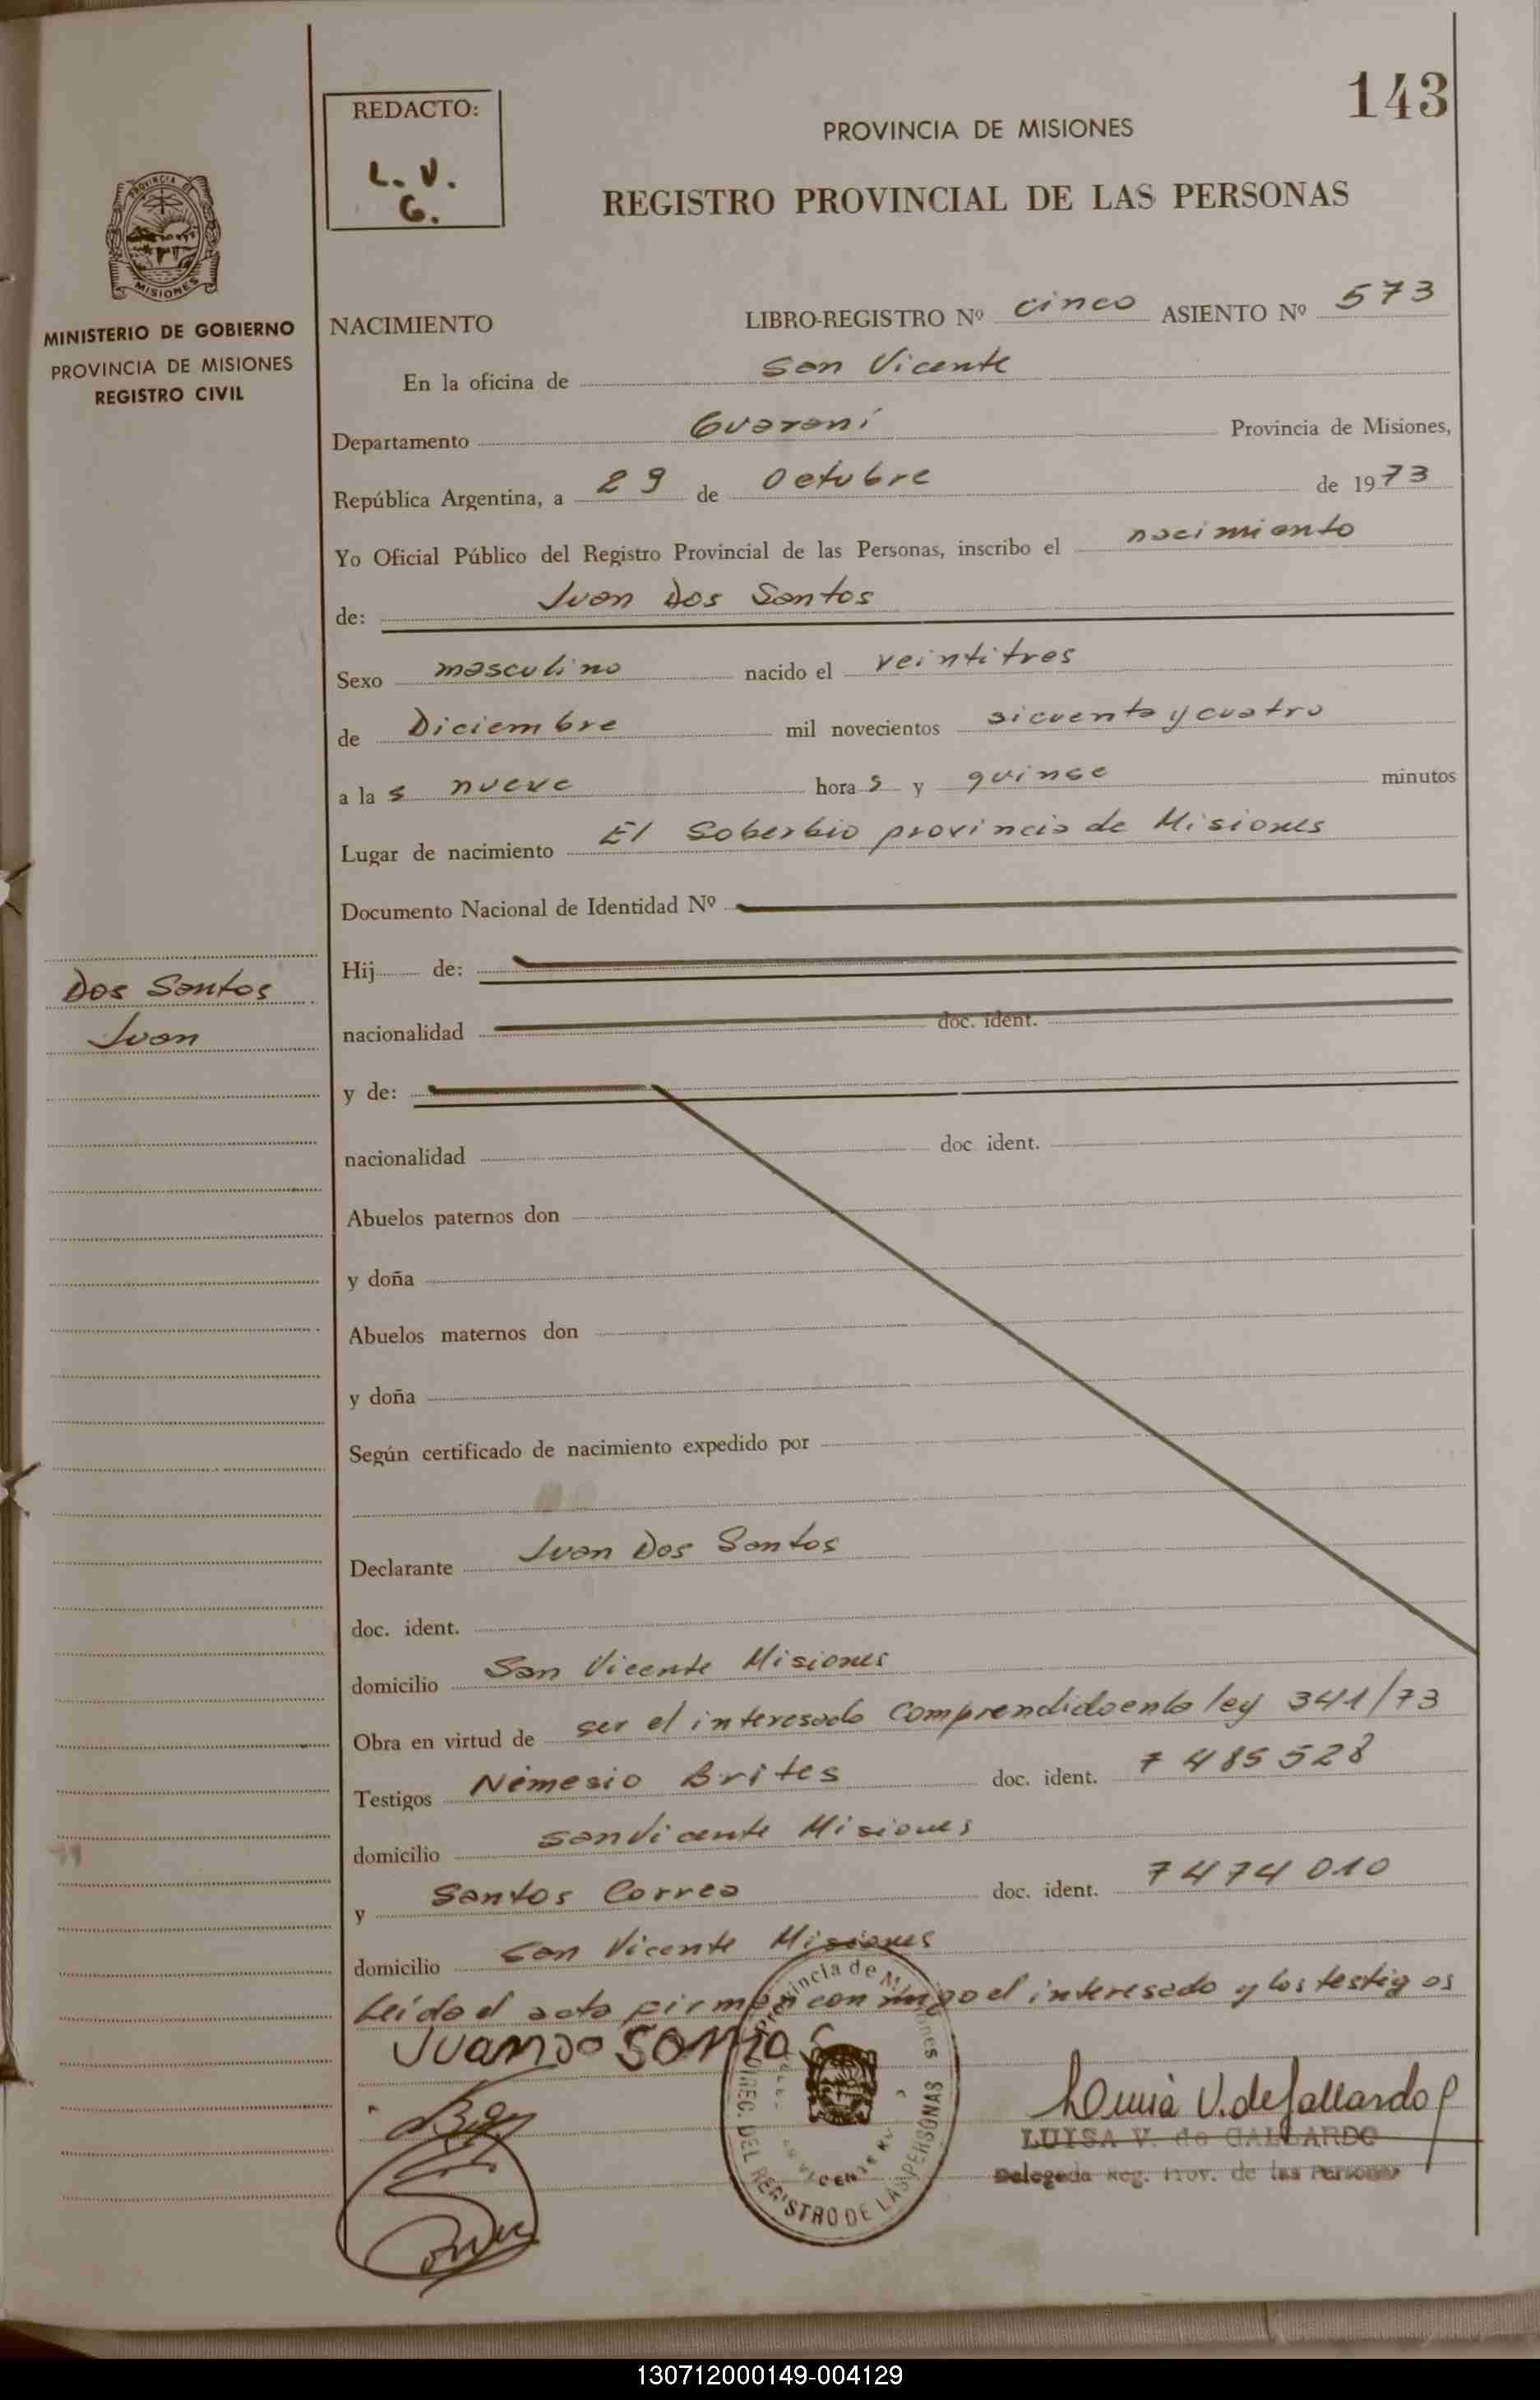 143
REDACTO:
L. V.
G.
PROVINCIA DE MISIONES
REGISTRO PROVINCIAL DE LAS PERSONAS
PROVINCIA DE
MISIONES
MINISTERIO DE GOBIERNO
PROVINCIA DE MISIONES
REGISTRO CIVIL
NACIMIENTO LIBRO-REGISTRO Nº cinco ASIENTO Nº 573
En la oficina de San Vicente
Departamento Guaraní Provincia de Misiones,
República Argentina, a 29 de Octubre de 1973
Yo Oficial Público del Registro Provincial de las Personas, inscribo el nacimiento
de: Juan Dos Santos
Sexo masculino nacido el veintitres
de Diciembre mil novecientos sicuenta y cuatro
a las nueve horas y quinse minutos
Lugar de nacimiento El Soberbio provincia de Misiones
Documento Nacional de Identidad Nº
Hij de:
Dos Santos
Juan
nacionalidad doc. ident.
y de:
nacionalidad doc ident.
Abuelos paternos don
y doña
Abuelos maternos don
y doña
Según certificado de nacimiento expedido por
Declarante Juan Dos Santos
doc. ident.
domicilio San Vicente Misiones
Obra en virtud de ser el interesado Comprendido en la ley 341/73
Testigos Némesio Brites doc. ident. 7 485 528
domicilio San Vicente Misiones
y Santos Correa doc. ident. 7474010
domicilio San Vicente Misiones
Leído el acta firman con migo el interesado y los testigos
Juan do Santos
Provincia de Misiones
DIREC. DEL REGISTRO DE LAS PERSONAS
Luisa V. de Gallardo
LUISA V. de GALLARDO
Delegada Reg. Prov. de las Personas
130712000149-004129